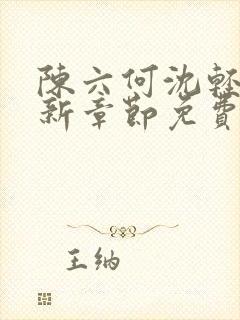 陳六何沈輕
新章節免費
王纳